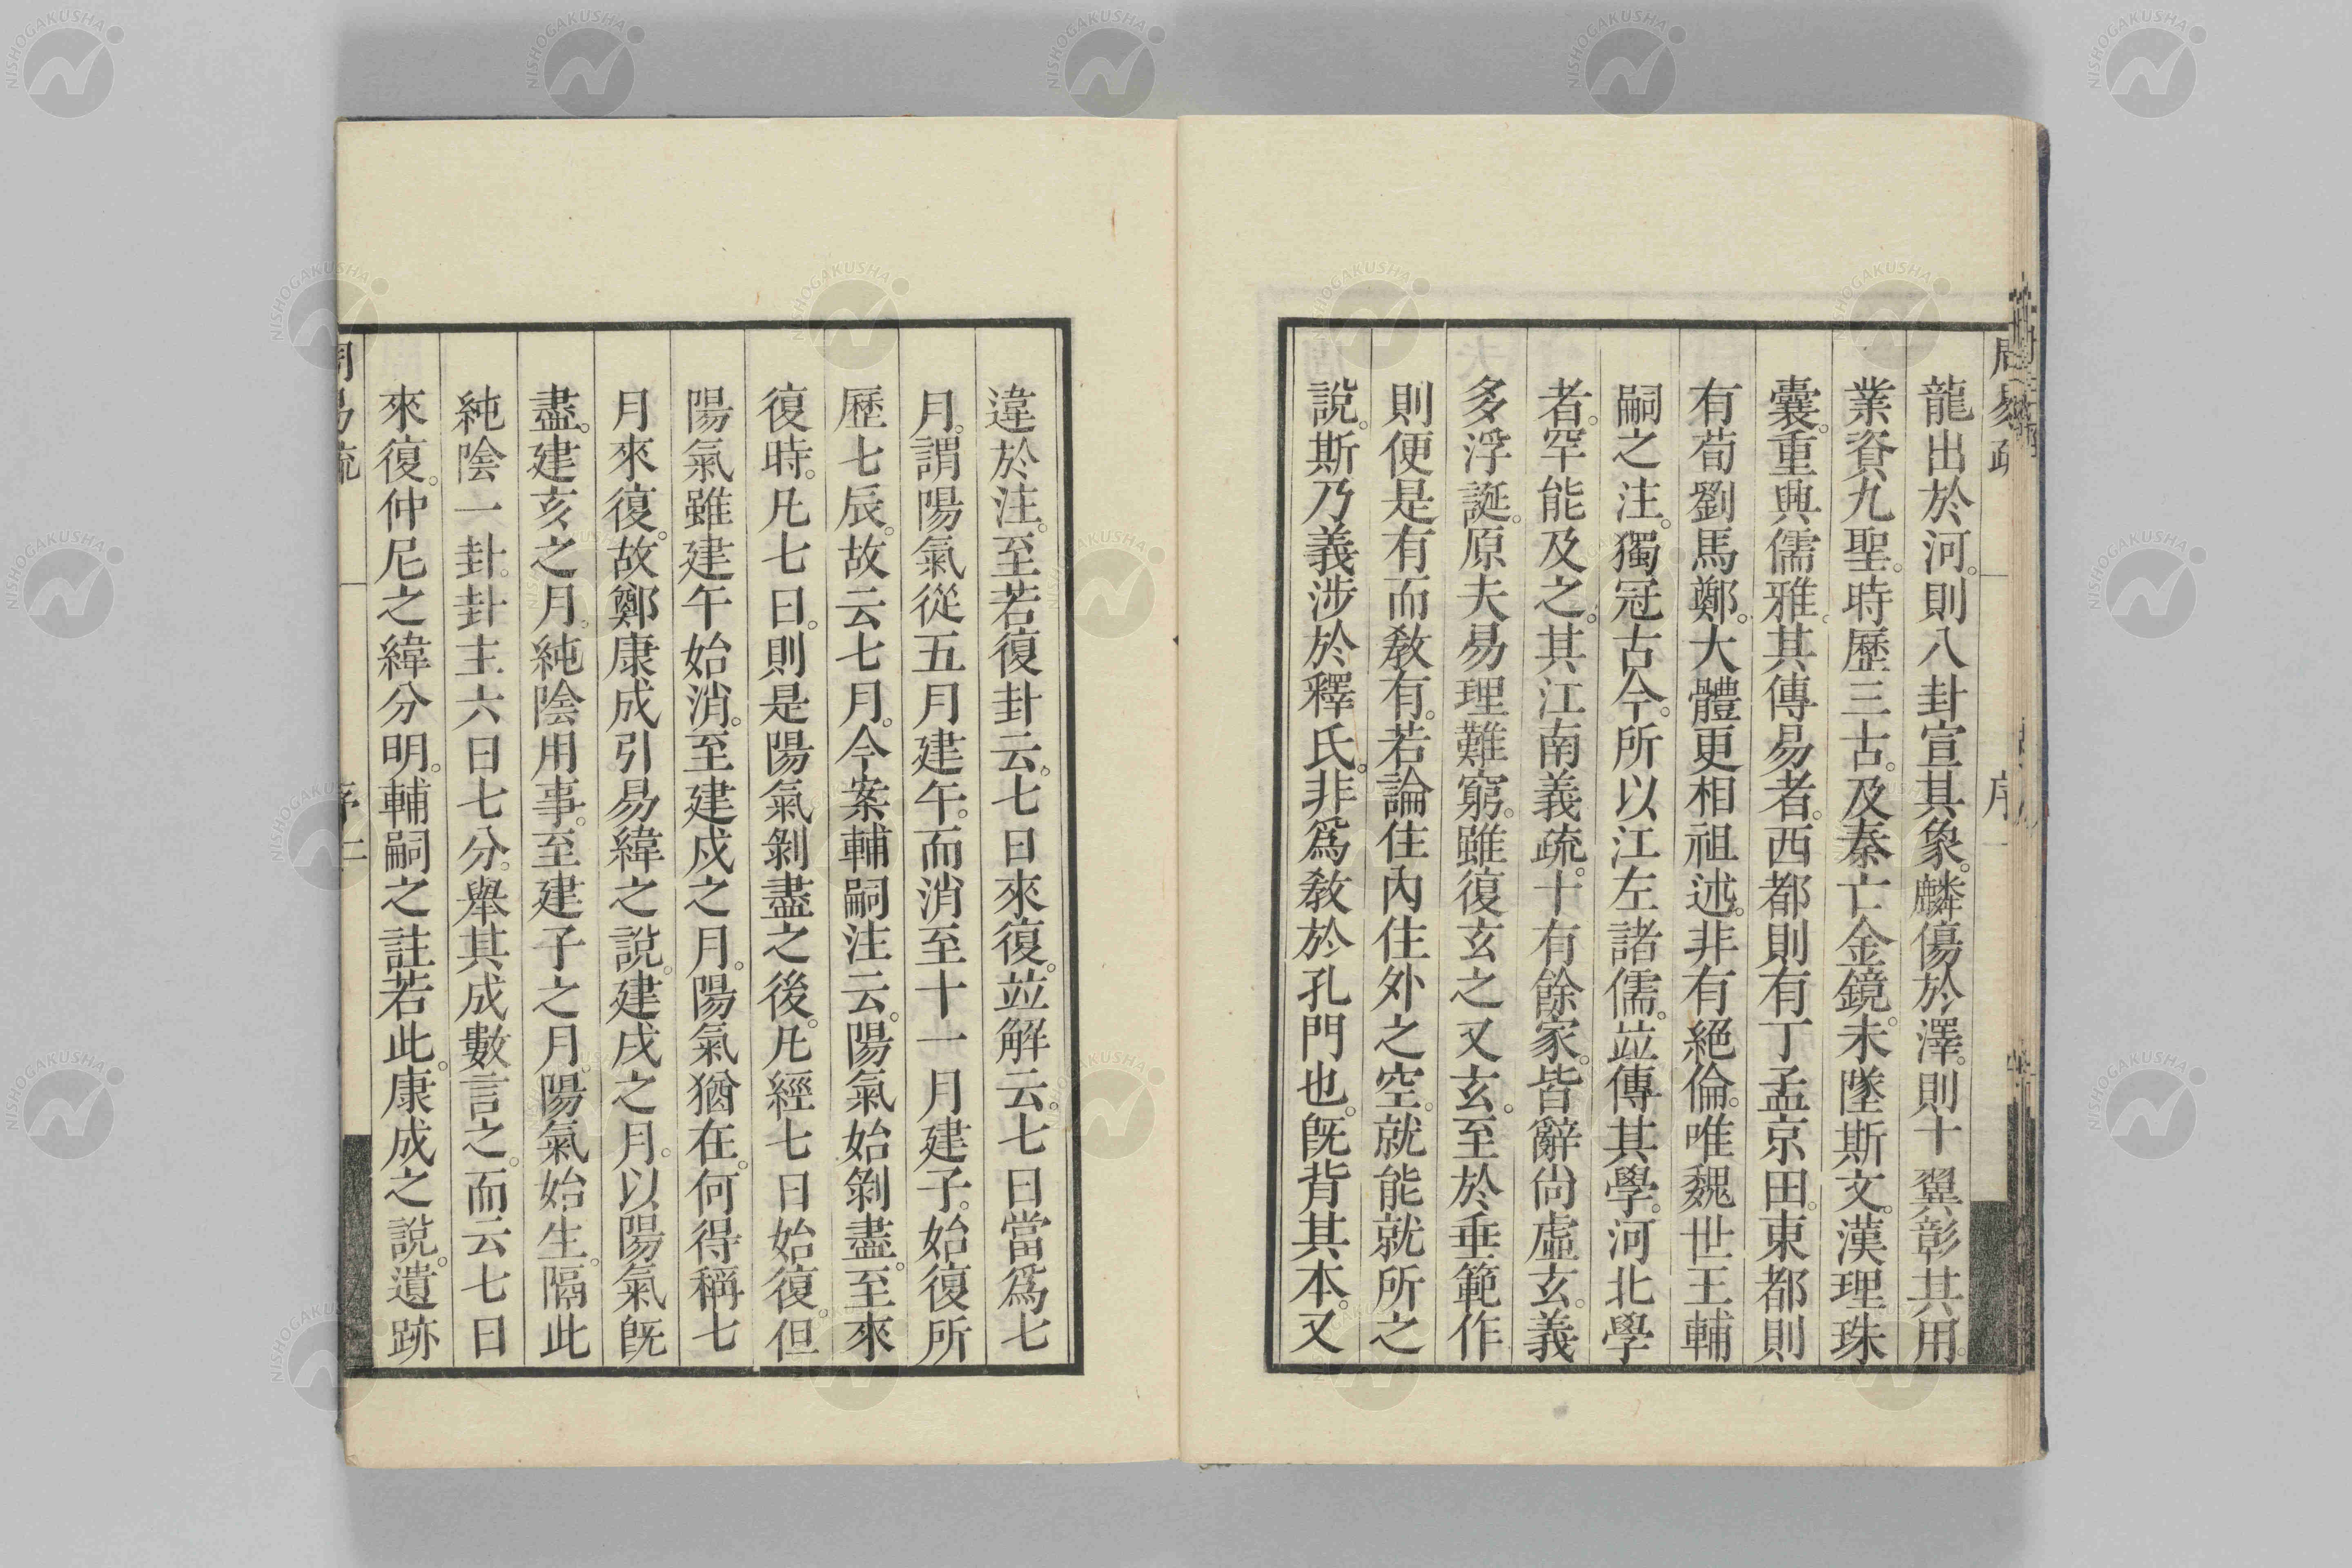 周易疏 序一
龍出於河。則八卦宣其象。麟傷於澤。則十翼彰其用。
業資九聖。時歷三古。及秦亡金鏡。未墜斯文。漢理珠
囊。重興儒雅。其傳易者。西都則有丁孟京田。東都則
有荀劉馬鄭。大體更相祖述。非有絕倫。唯魏世王輔
嗣之注。獨冠古今。所以江左諸儒。竝傳其學。河北學
者。罕能及之。其江南義疏。十有餘家。皆辭尙虛玄。義
多浮誕。原夫易理難窮。雖復玄之又玄。至於垂範作
則便是有而敎有。若論住內住外之空。就能就所之
說。斯乃義涉於釋氏。非爲敎於孔門也。旣背其本。又
違於注。至若復卦云。七日來復。竝解云。七日當爲七
月。謂陽氣從五月建午。而消至十一月建子。始復所
歷七辰。故云七月。今案輔嗣注云。陽氣始剝盡。至來
復時。凡七日。則是陽氣剝盡之後。凡經七日始復。但
陽氣雖建午始消。至建戌之月。陽氣猶在。何得稱七
月來復。故鄭康成引易緯之說。建戌之月。以陽氣旣
盡。建亥之月。純陰用事。至建子之月。陽氣始生。隔此
純陰一卦。卦主六日七分。舉其成數言之。而云七日
來復。仲尼之緯分明。輔嗣之註若此。康成之說。遺跡
周易疏 序二
NISHOGAKUSHA